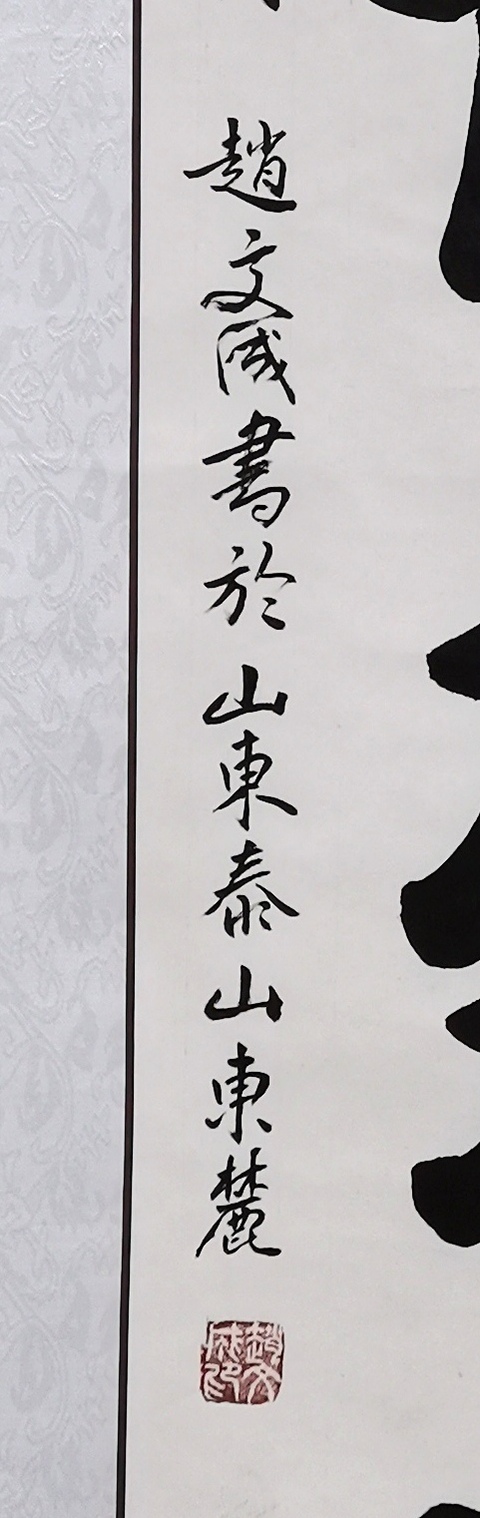 趙文成書於山東泰山東麓
趙文成印